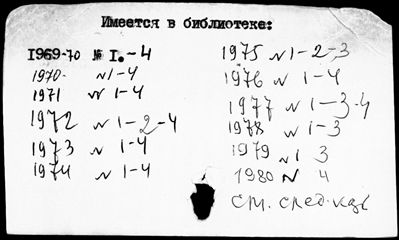 Имеется в библиотеке:
1969-70 № I.-4
1970- N 1-4
1971 N 1-4
1972 N 1-2-4
1973 N 1-4
1974 N 1-4
1975 N 1-2-3
1976 N 1-4
1977 N 1-3-4
1978 N 1-3
1979 N 1 3
1980 N 4
см. след.